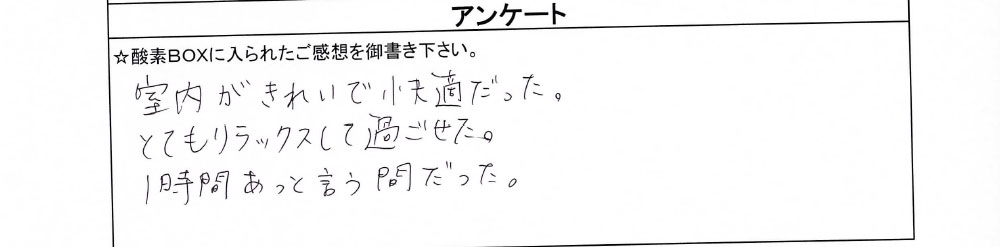 アンケート
☆酸素BOXに入られたご感想を御書き下さい。
室内がきれいで快適だった。
とてもリラックスして過ごせた。
1時間あっと言う間だった。